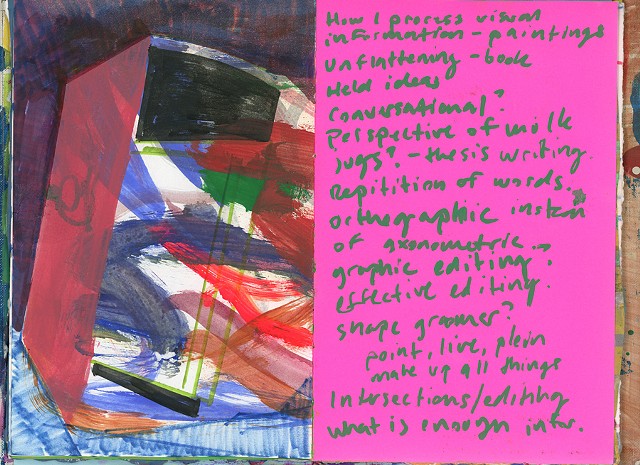 How I process visual
information - paintings
unflattening - book
Held ideas
conversational?
Perspective of milk
Jugs? - thesis writing.
Repitition of words.
orthographic instead
of axonometric..,
graphic editing,
effective editing.
shape groomer?
point, live, plein
make up all things
Intersections/editing
what is enough infor.